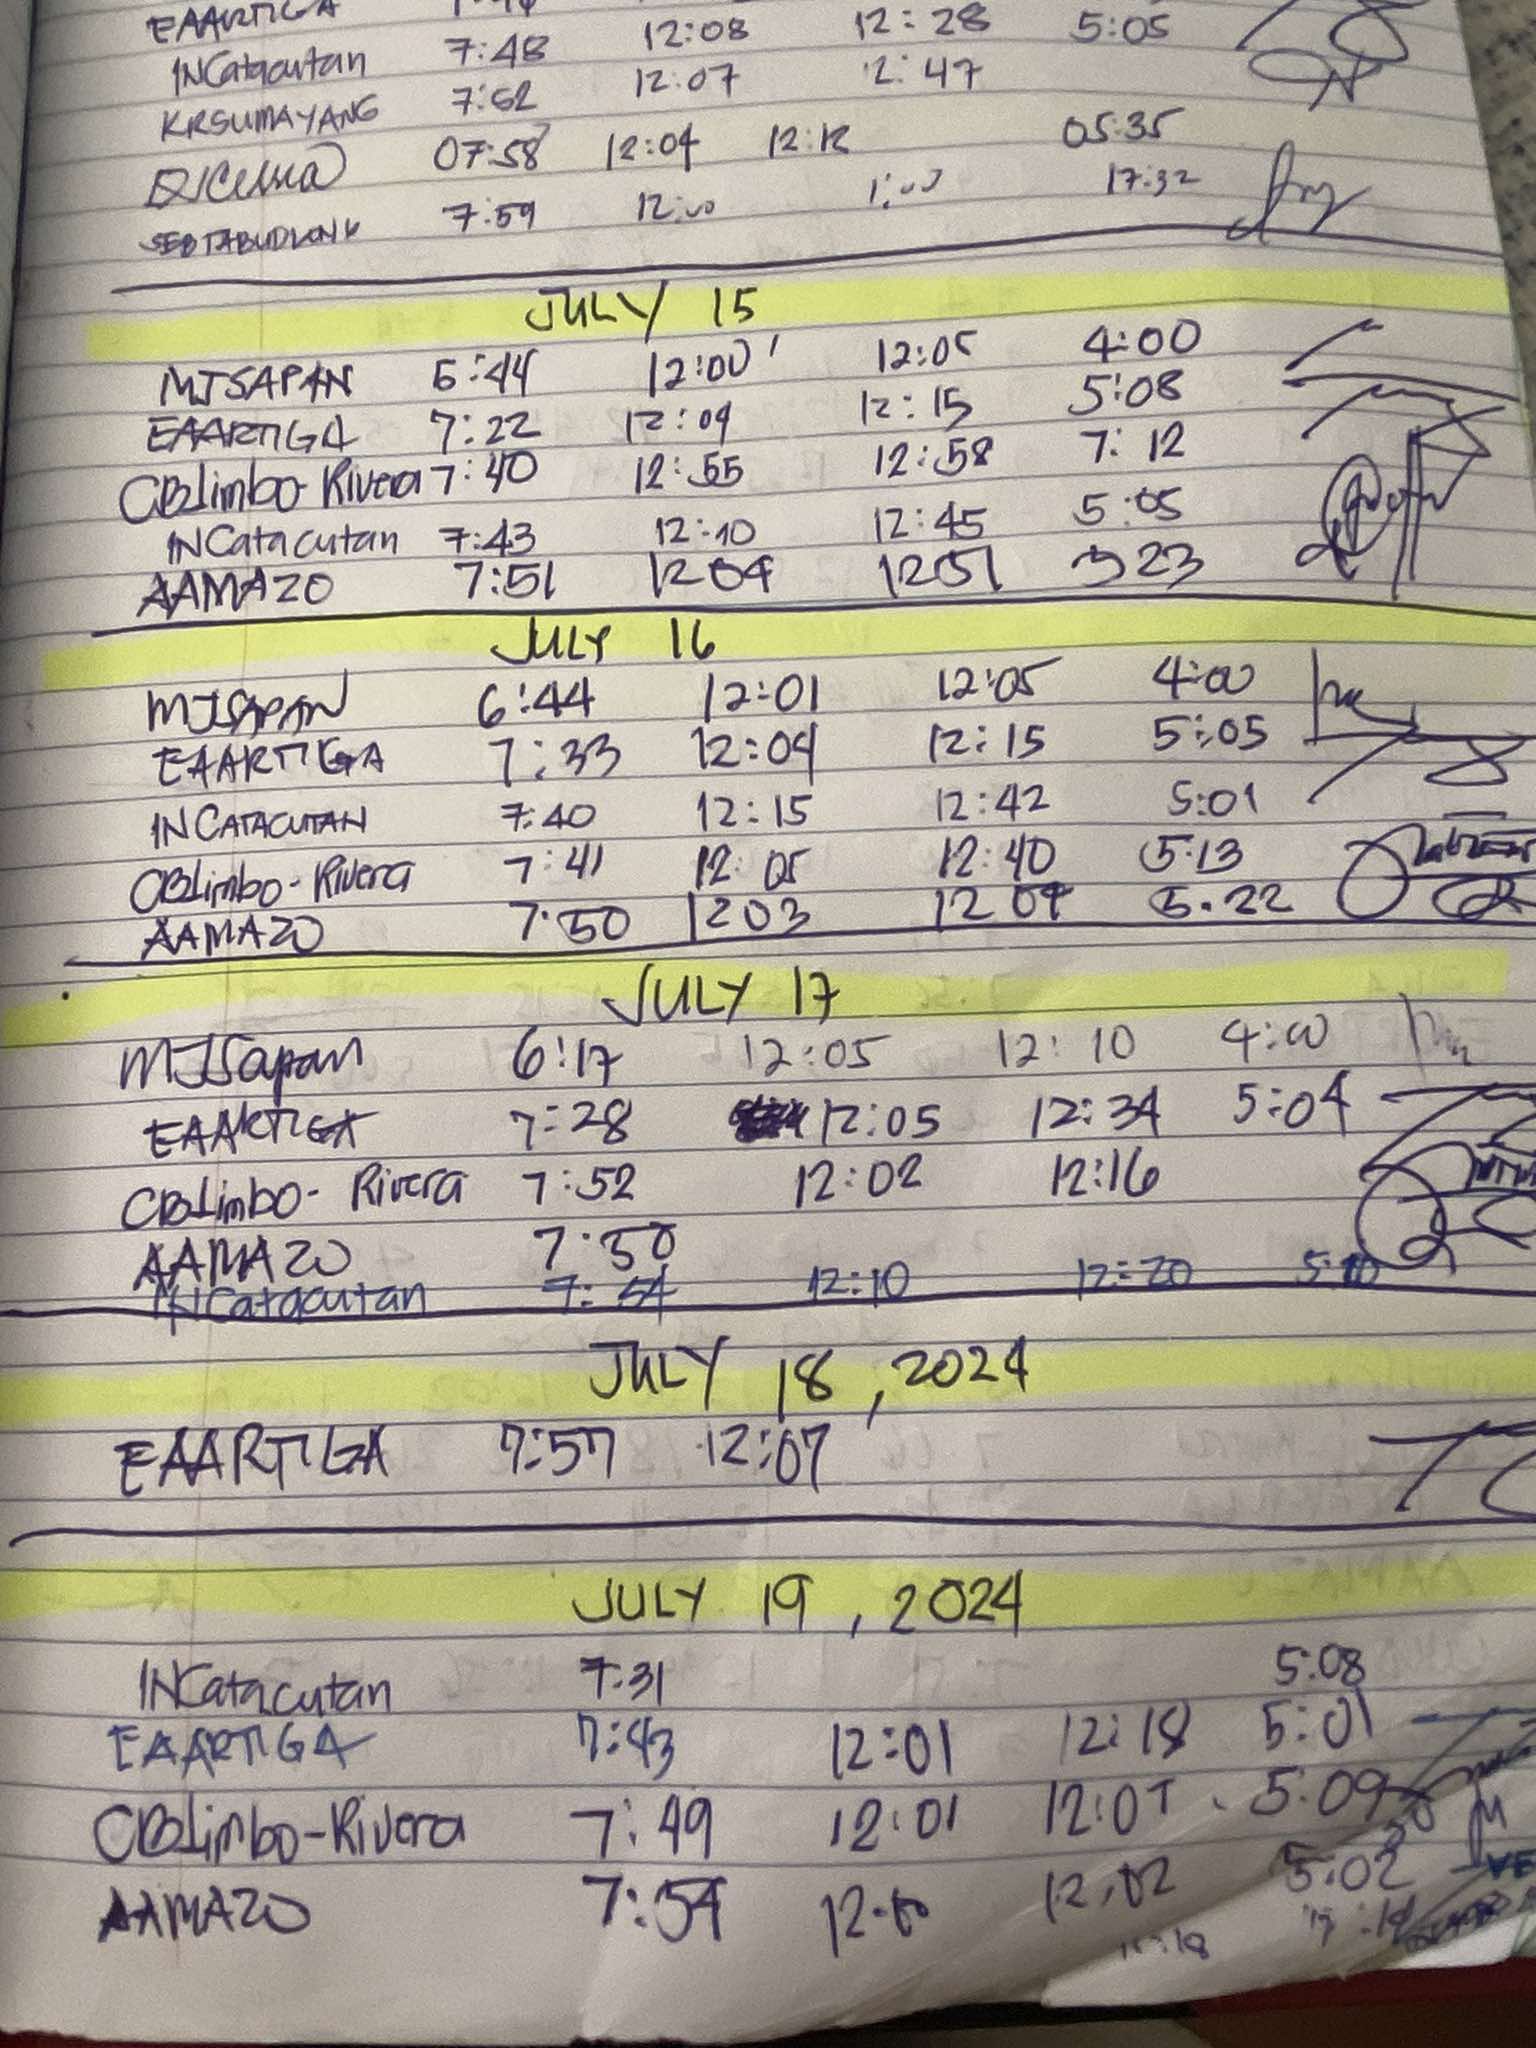 EAARTIGA
INCatacutan 7:48 12:08 12:28 5:05
KRSUMAYANG 7:52 12:07 12:47
07:58 12:04 12:12 05:35
7:59 12:00 1:00 17:32
JULY 15
MJSAPAN 6:44 12:00 12:05 4:00
EAARTIGA 7:22 12:09 12:15 5:08
CBLimbo-Rivera 7:40 12:55 12:58 7:12
INCatacutan 7:43 12:10 12:45 5:05
AAMAZO 7:51 1204 1251 523
JULY 16
MJSAPAN 6:44 12:01 12:05 4:00
EAARTIGA 7:33 12:04 12:15 5:05
INCATACUTAN 7:40 12:15 12:42 5:01
CBLimbo-Rivera 7:41 12:05 12:40 5:13
AAMAZO 7:50 1203 1204 5.22
JULY 17
MJSapan 6:17 12:05 12:10 4:00
EAARTIGA 7:28 12:05 12:34 5:04
CBLimbo-Rivera 7:52 12:02 12:16
AAMAZO 7:50
INCatacutan 7:54 12:10 12:20 5:10
JULY 18, 2024
EAARTIGA 7:57 12:07
JULY 19, 2024
INCatacutan 7:31 5:08
EAARTIGA 7:43 12:01 12:18 5:01
CBLimbo-Rivera 7:49 12:01 12:07 5:09
AAMAZO 7:54 12:02 5:02